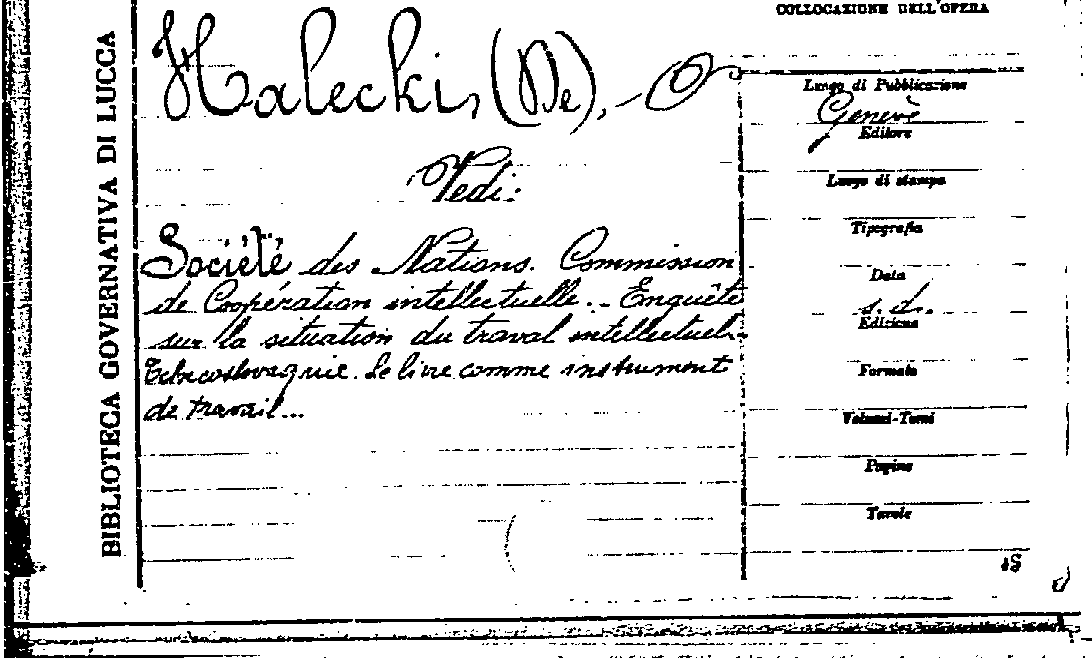 COLLOCAZIONE DELL'OPERA
BIBLIOTECA GOVERNATIVA DI LUCCA
Halecki, (De), - O
Vedi:
Société des Nations. Commission
de Coopération intellectuelle. - Enquête
sur la situation du traval intellectuel.-
Tchecoslovaquie. Le livre comme instrument
de travail...
Luogo di Pubblicazione
Genevè
Editore
Luogo di stampa
Tipografia
Data
s. d.
Edizione
Formato
Volumi-Tomi
Pagine
Tavole